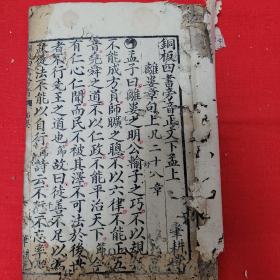 銅板四書旁音正文下孟上
離婁章句上凡二十八章
孟子曰離婁之明公輸子之巧不以規
不能成方員師曠之聰不以六律不能正五
音堯舜之道不以仁政不能平治天下今
有仁心仁聞而民不被其澤不可法於後世
者不行先王之道也故曰徒善不足以為
政徒法不能以自行詩云不愆不忘率